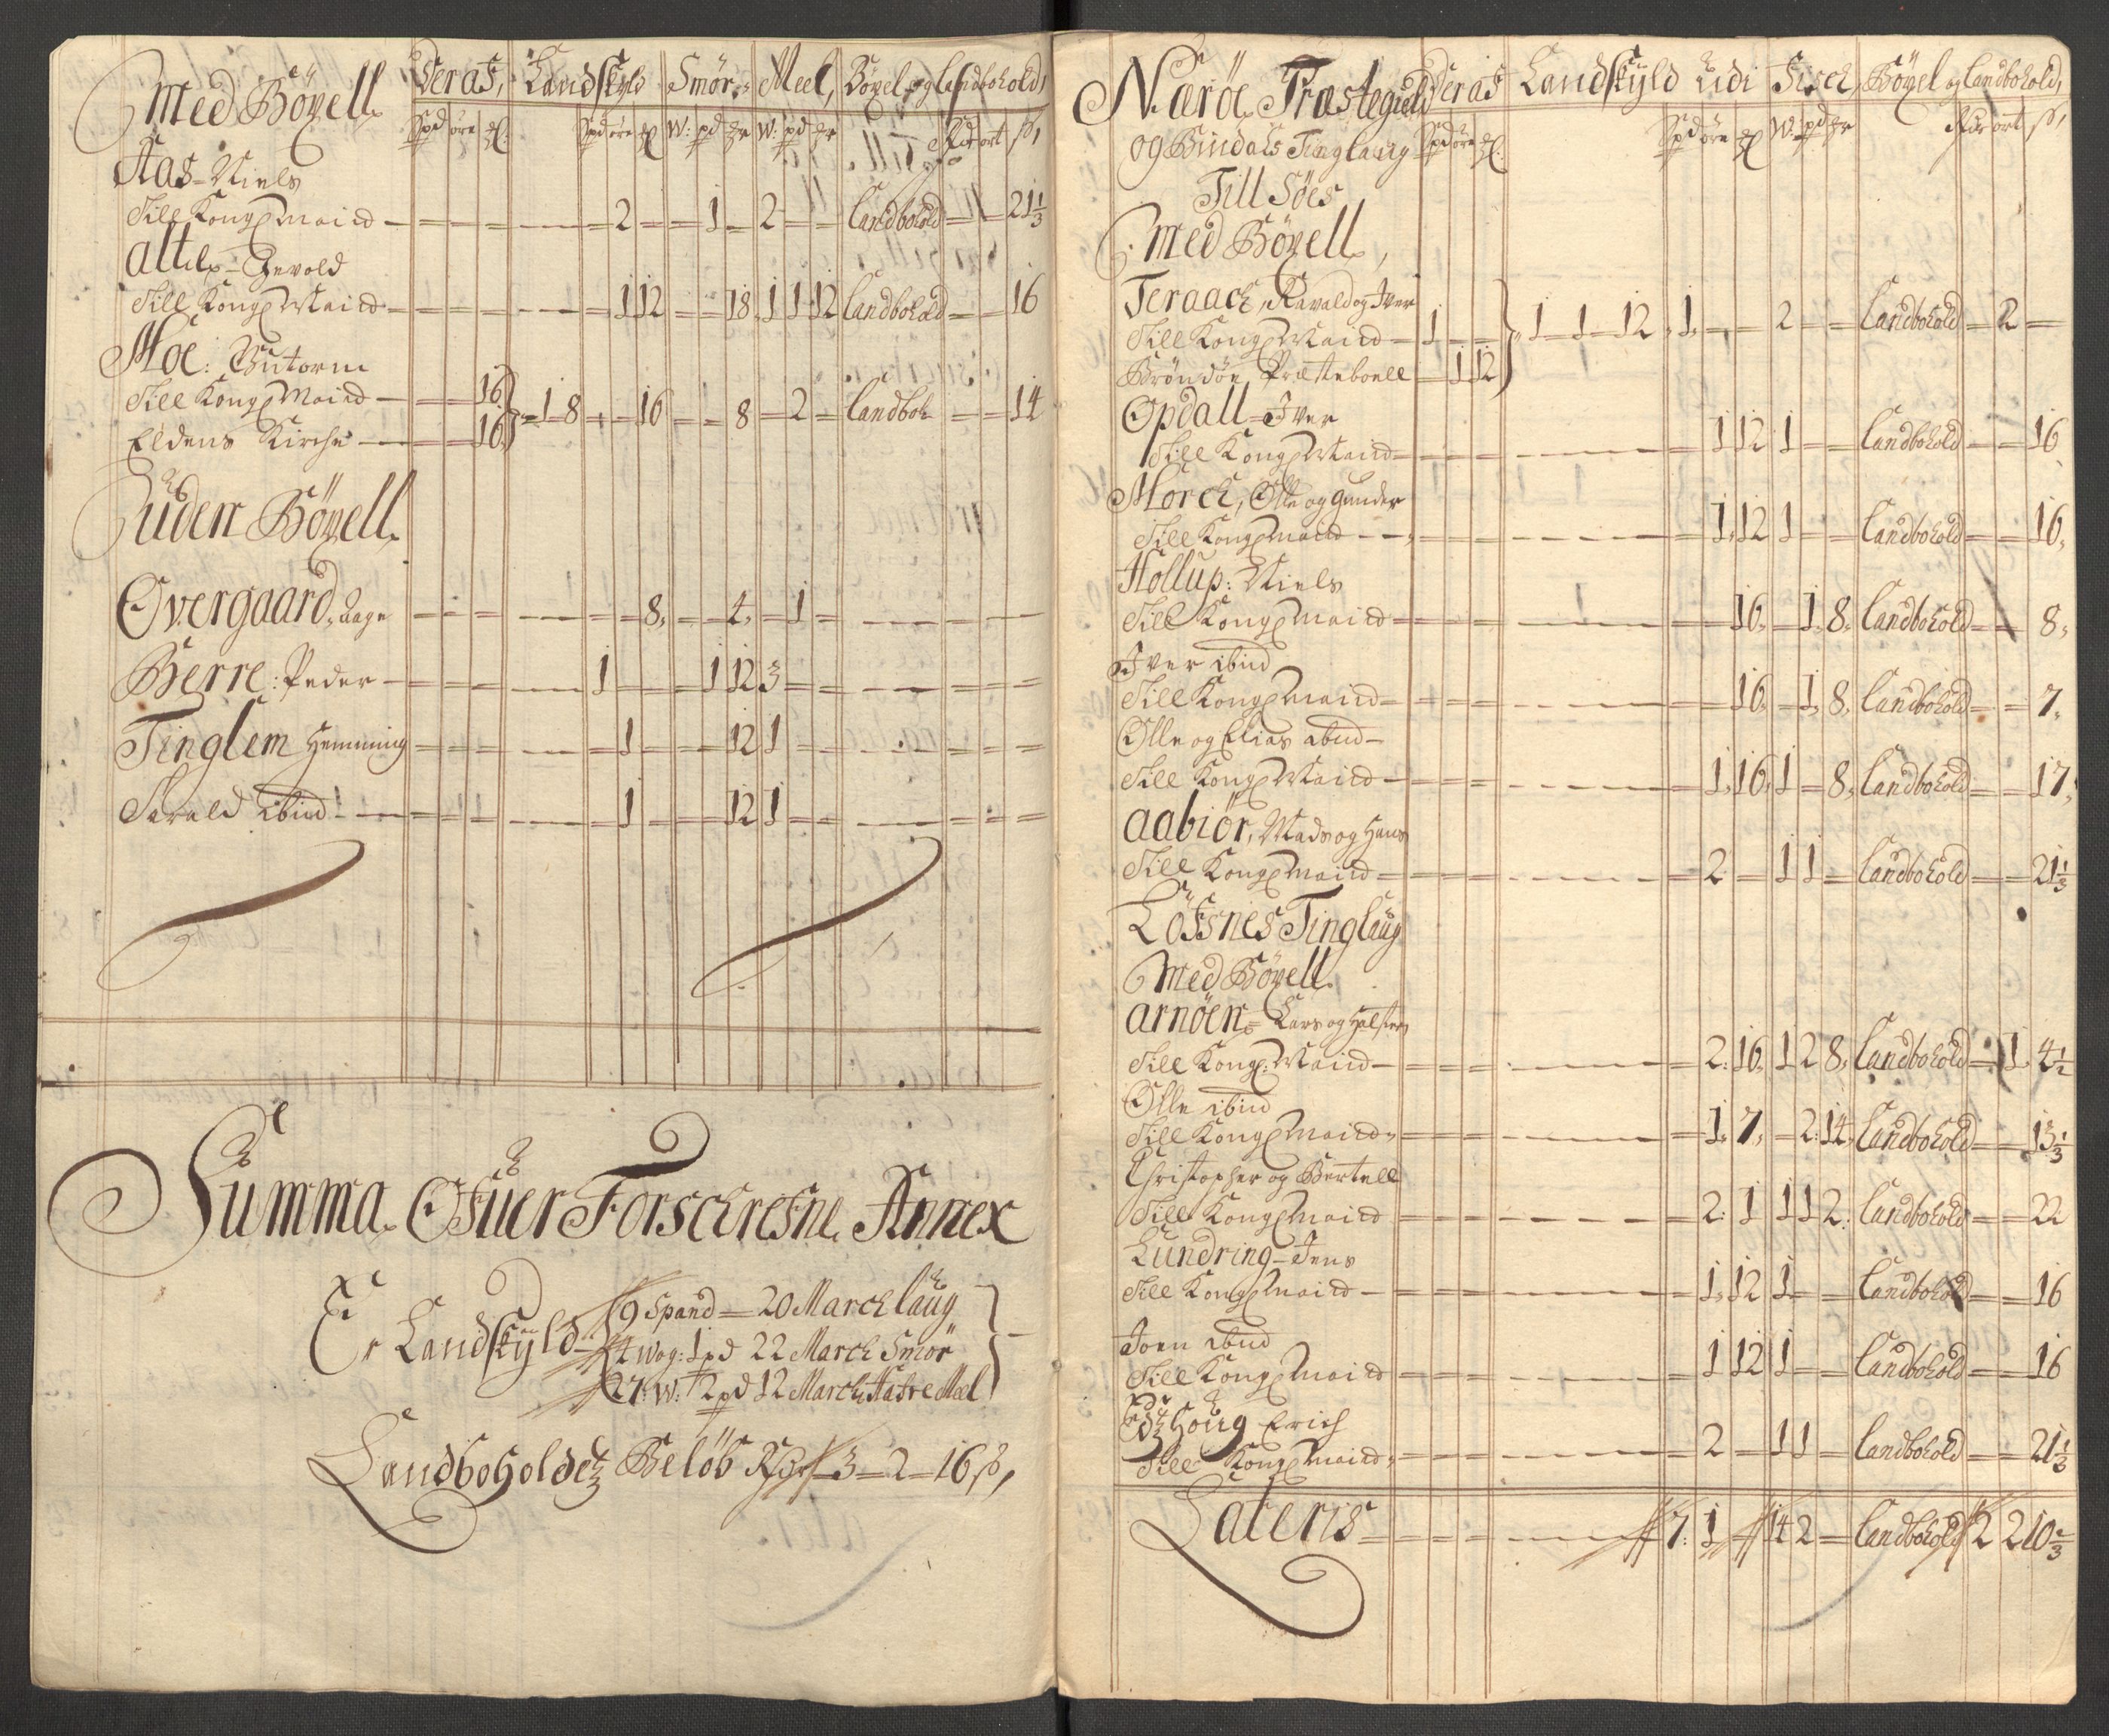 Med Böxell. Deraf, Landskyld Smör. Meel, Böxel og Landbohold,
Spd öre Spd öre W: pd W: pd Rdr ort ß,
Aas Niels
Till Kong Maid 2 1 2 Landbohold 21 1/3
Till Kong Maid 1 12 18 1 1 12 Landbohold 16
Moe: Gutorm
Till Kong Maid 16
Eldens Kirche 16 1 8 16 8 2 Landboh 14
Uden Böxell.
Overgaard, Aage 8, 4, 1
Berre: Peder 1 1 12 3
Tinglem Hemming 1 12 1
Harald ibid 1 12 1
Summa Ofuer Forschrefne Annex
Er Landskyld 9 Spand 20 March laug
4 Wog: 1 pd 22 March Smör
27: W: 2 pd 12 March Hafre Mel
Landboholdet Belöb Rdr 3 2 16 ß,
Næröe Præstegield Deraf Landskyld udi Fisch, Böxel og Landbohold,
og Bindals Tinglaug Spd öre Spd öre W: pd Rdr ort ß,
Till Söes
Med Böxell,
Teraach, Ravald og Iver
Till Kong Maid 1 1 1 12 1 2 Landbohold 2
Bröndöe Præsteboell 1 12
Opdall Iver
Till Kong Maid 1 12 1 Landbohold 16
Horch, Olle og Gunder
Till Kong Maid 1 12 1 Landbohold 16,
Hollup: Niels
Till Kong Maid 16, 1 8, Landbohold 8,
Iver ibid
Till Kong Maid 16, 1, 8, Landbohold 7,
Olle og Elias ibid
Till Kong Maid 1, 16, 1 8, Landbohold 17,
Aabiör, Mads og Hans
Till Kong Maid 2 1 1 Landbohold 21 1/3
Löfsnes Tinglaug
Med Böxell.
Arnöen Lars og Halsten
Till Kong: Maid 2: 16, 1 2 8, Landbohold 1 4 1/2
Olle ibid
Till Kong Maid 1, 7, 2: 14, Landbohold 13 1/3
Christopher og Bertell
Till Kong Maid 2: 1 1 1 2: Landbohold 22
Lundring Jens
Till Kong Maid 1, 12 1 Landbohold 16
Joen ibid
Till Kong Maid 1 12 1 Landbohold 16
Houg Erich
Till Kong Maid 2 1 1 Landbohold 21 1/3
Lateris 7: 1 14 2 Landbohold 2 2 10 2/3